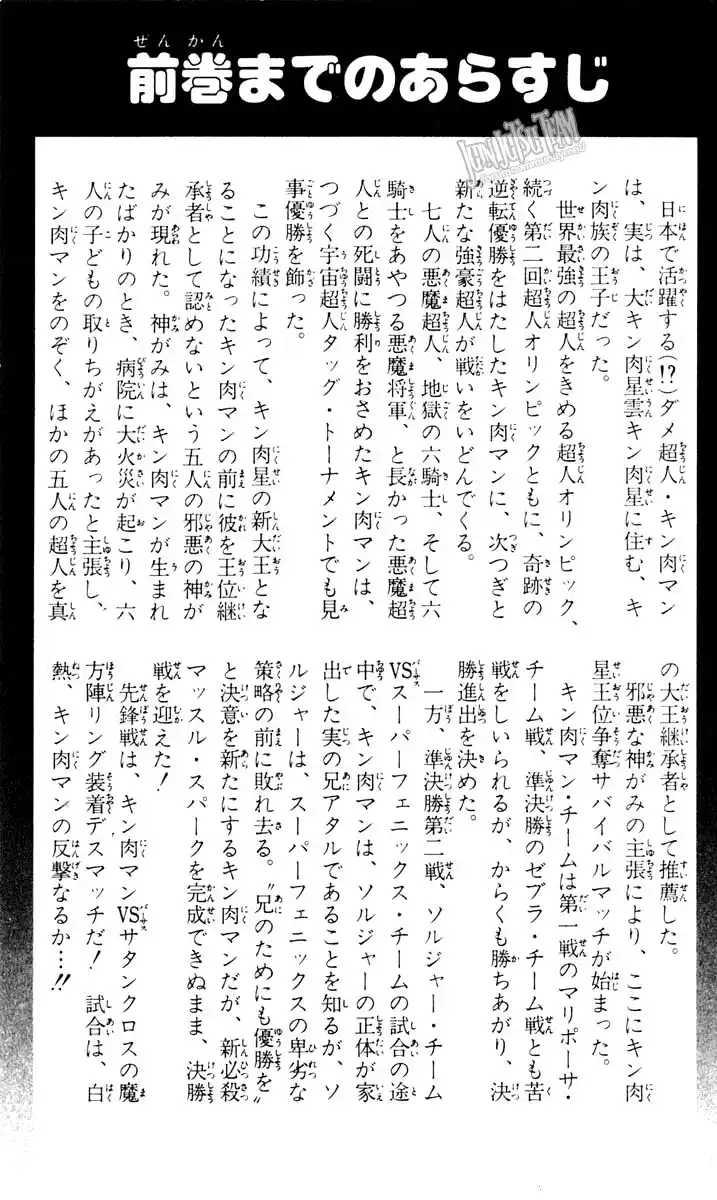 前巻までのあらすじ
日本で活躍する(!?)ダメ超人・キン肉マン
は、実は、大キン肉星雲キン肉星に住む、キ
ン肉族の王子だった。
世界最強の超人をきめる超人オリンピック、
続く第二回超人オリンピックともに、奇跡の
逆転優勝をはたしたキン肉マンに、次つぎと
新たな強豪超人が戦いをいどんでくる。
七人の悪魔超人、地獄の六騎士、そして六
騎士をあやつる悪魔将軍、と長かった悪魔超
人との死闘に勝利をおさめたキン肉マンは、
つづく宇宙超人タッグ・トーナメントでも見
事優勝を飾った。
この功績によって、キン肉星の新大王とな
ることになったキン肉マンの前に彼を王位継
承者として認めないという五人の邪悪の神が
みが現れた。神がみは、キン肉マンが生まれ
たばかりのとき、病院に大火災が起こり、六
人の子どもの取りちがえがあったと主張し、
キン肉マンをのぞく、ほかの五人の超人を真
の大王継承者として推薦した。
邪悪な神がみの主張により、ここにキン肉
星王位争奪サバイバルマッチが始まった。
キン肉マン・チームは第一戦のマリポーサ・
チーム戦、準決勝のゼブラ・チーム戦とも苦
戦をしいられるが、からくも勝ちあがり、決
勝進出を決めた。
一方、準決勝第二戦、ソルジャー・チーム
VSスーパーフェニックス・チームの試合の途
中で、キン肉マンは、ソルジャーの正体が家
出した実の兄アタルであることを知るが、ソ
ルジャーは、スーパーフェニックスの卑劣な
策略の前に敗れ去る。〝兄のためにも優勝を〟
と決意を新たにするキン肉マンだが、新必殺
マッスル・スパークを完成できぬまま、決勝
戦を迎えた!
先鋒戦は、キン肉マンVSサタンクロスの魔
方陣リング装着デスマッチだ! 試合は、白
熱、キン肉マンの反撃なるか…!!